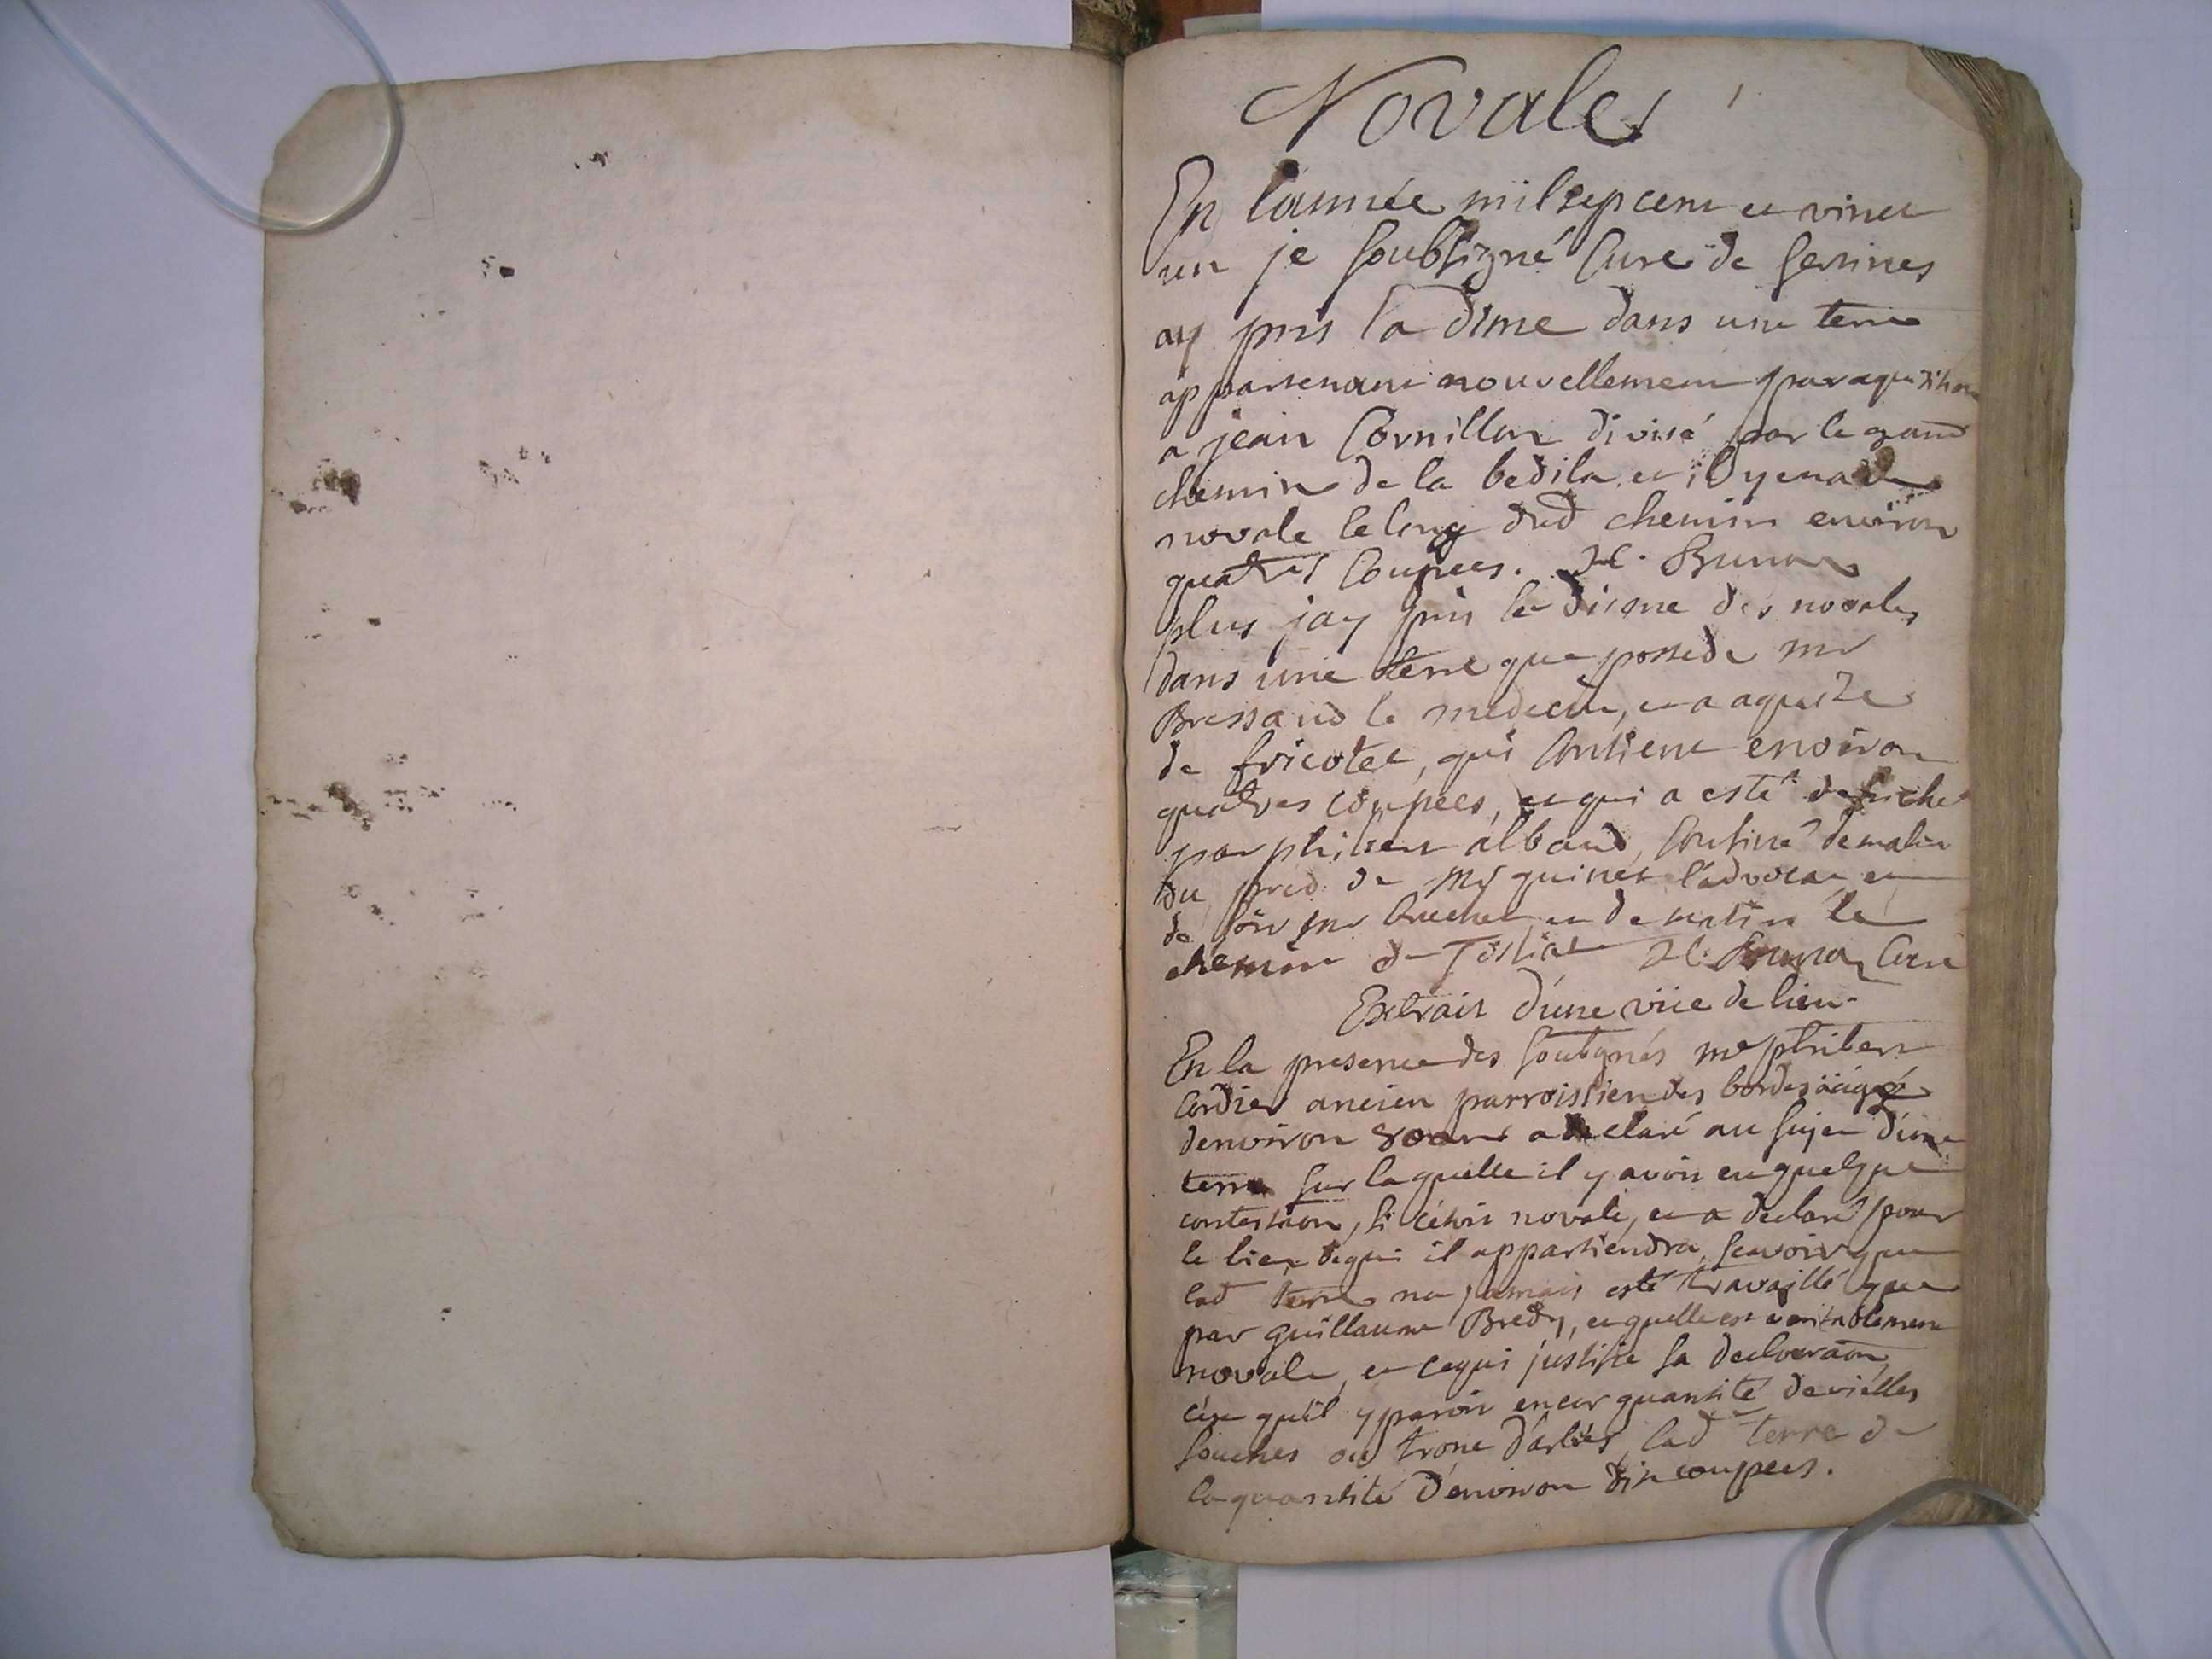 Novales
En l'année mil sept cent et vinct
un je soubsigné Curé de Servines
ay pris la dime dans une terre
appartenant nouvellement par aquisition
a jean Cornillon divisé par le grand
chemin de la bedila et il y en a de
novale le long dud chemin environ
quatres Coupees. Brunon
plus jay pris la disme des novales
dans une terre que possede mr
Bressand le medecin, et a aquise
de fricotet, qui Contient environ
quatres coupees, et qui a esté defriché
par philibert alband, Confiné de matin
du pred de Mr guinet l'advocat et
de soir mr et de matin le
chemin de Tossiat Brunon Curé
Extrait d'une vüe de lieu
En la presence des soubsignés me philibert
Cordier ancien parroissien des bordes aägé
d'environ 80 ans a declaré au sujet d'une
terre sur laquelle il y avoit eu quelque
contestaon, si c'etoit novale, et a declaré pour
le bien de qui il appartiendra, scavoir que
lad terre na jamais esté travaillé que
par guillaume Bredy, et quelle est veritablement
novale, et ce qui justifie sa declaraon
c'est qu'il y paroit encor quantité de vielles
souches ou tronc d'arbres, lad terre de
la quantité d'environ dix coupees.